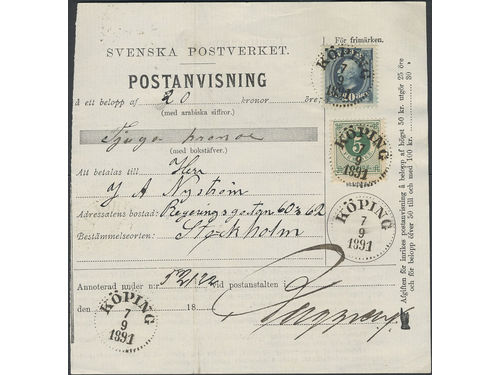 1. För frimärken.
SVENSKA POSTVERKET.
POSTANVISNING
å ett belopp af 20 kronor öre
(med arabiska siffror.)
Tjugo kronor
(med bokstäfver.)
Att betalas till Herr
J A Nyström
Adressatens bostad: Regeringsgatan 60 & 62
Bestämmelseorten: Stockholm
Annoterad under n:r 52/122 vid postanstalten i
den 18
Köping
KÖPING
7
9
1891
20 ÖRE
KÖPING
7
9
1891
5
KÖPING
7
9
1891
KÖPING
7
9
1891
Afgiften för inrikes postanvisning å belopp af högst 50 kr. utgör 25 öre
och för belopp öfver 50 till och med 100 kr. 30 »